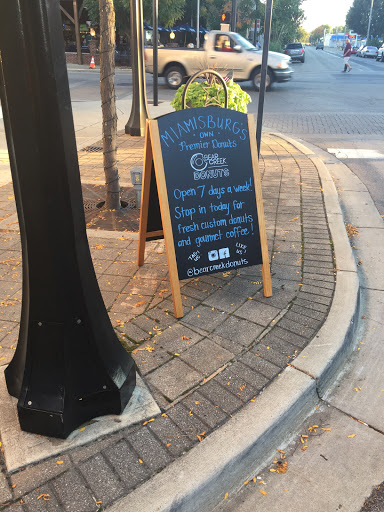 MIAMISBURG'S
OWN
Premier Donuts
BEAR
CREEK
DONUTS
Open 7 days a week!
Stop in today for
fresh custom donuts
and gourmet coffee!
LIKE US!
@bearcreekdonuts